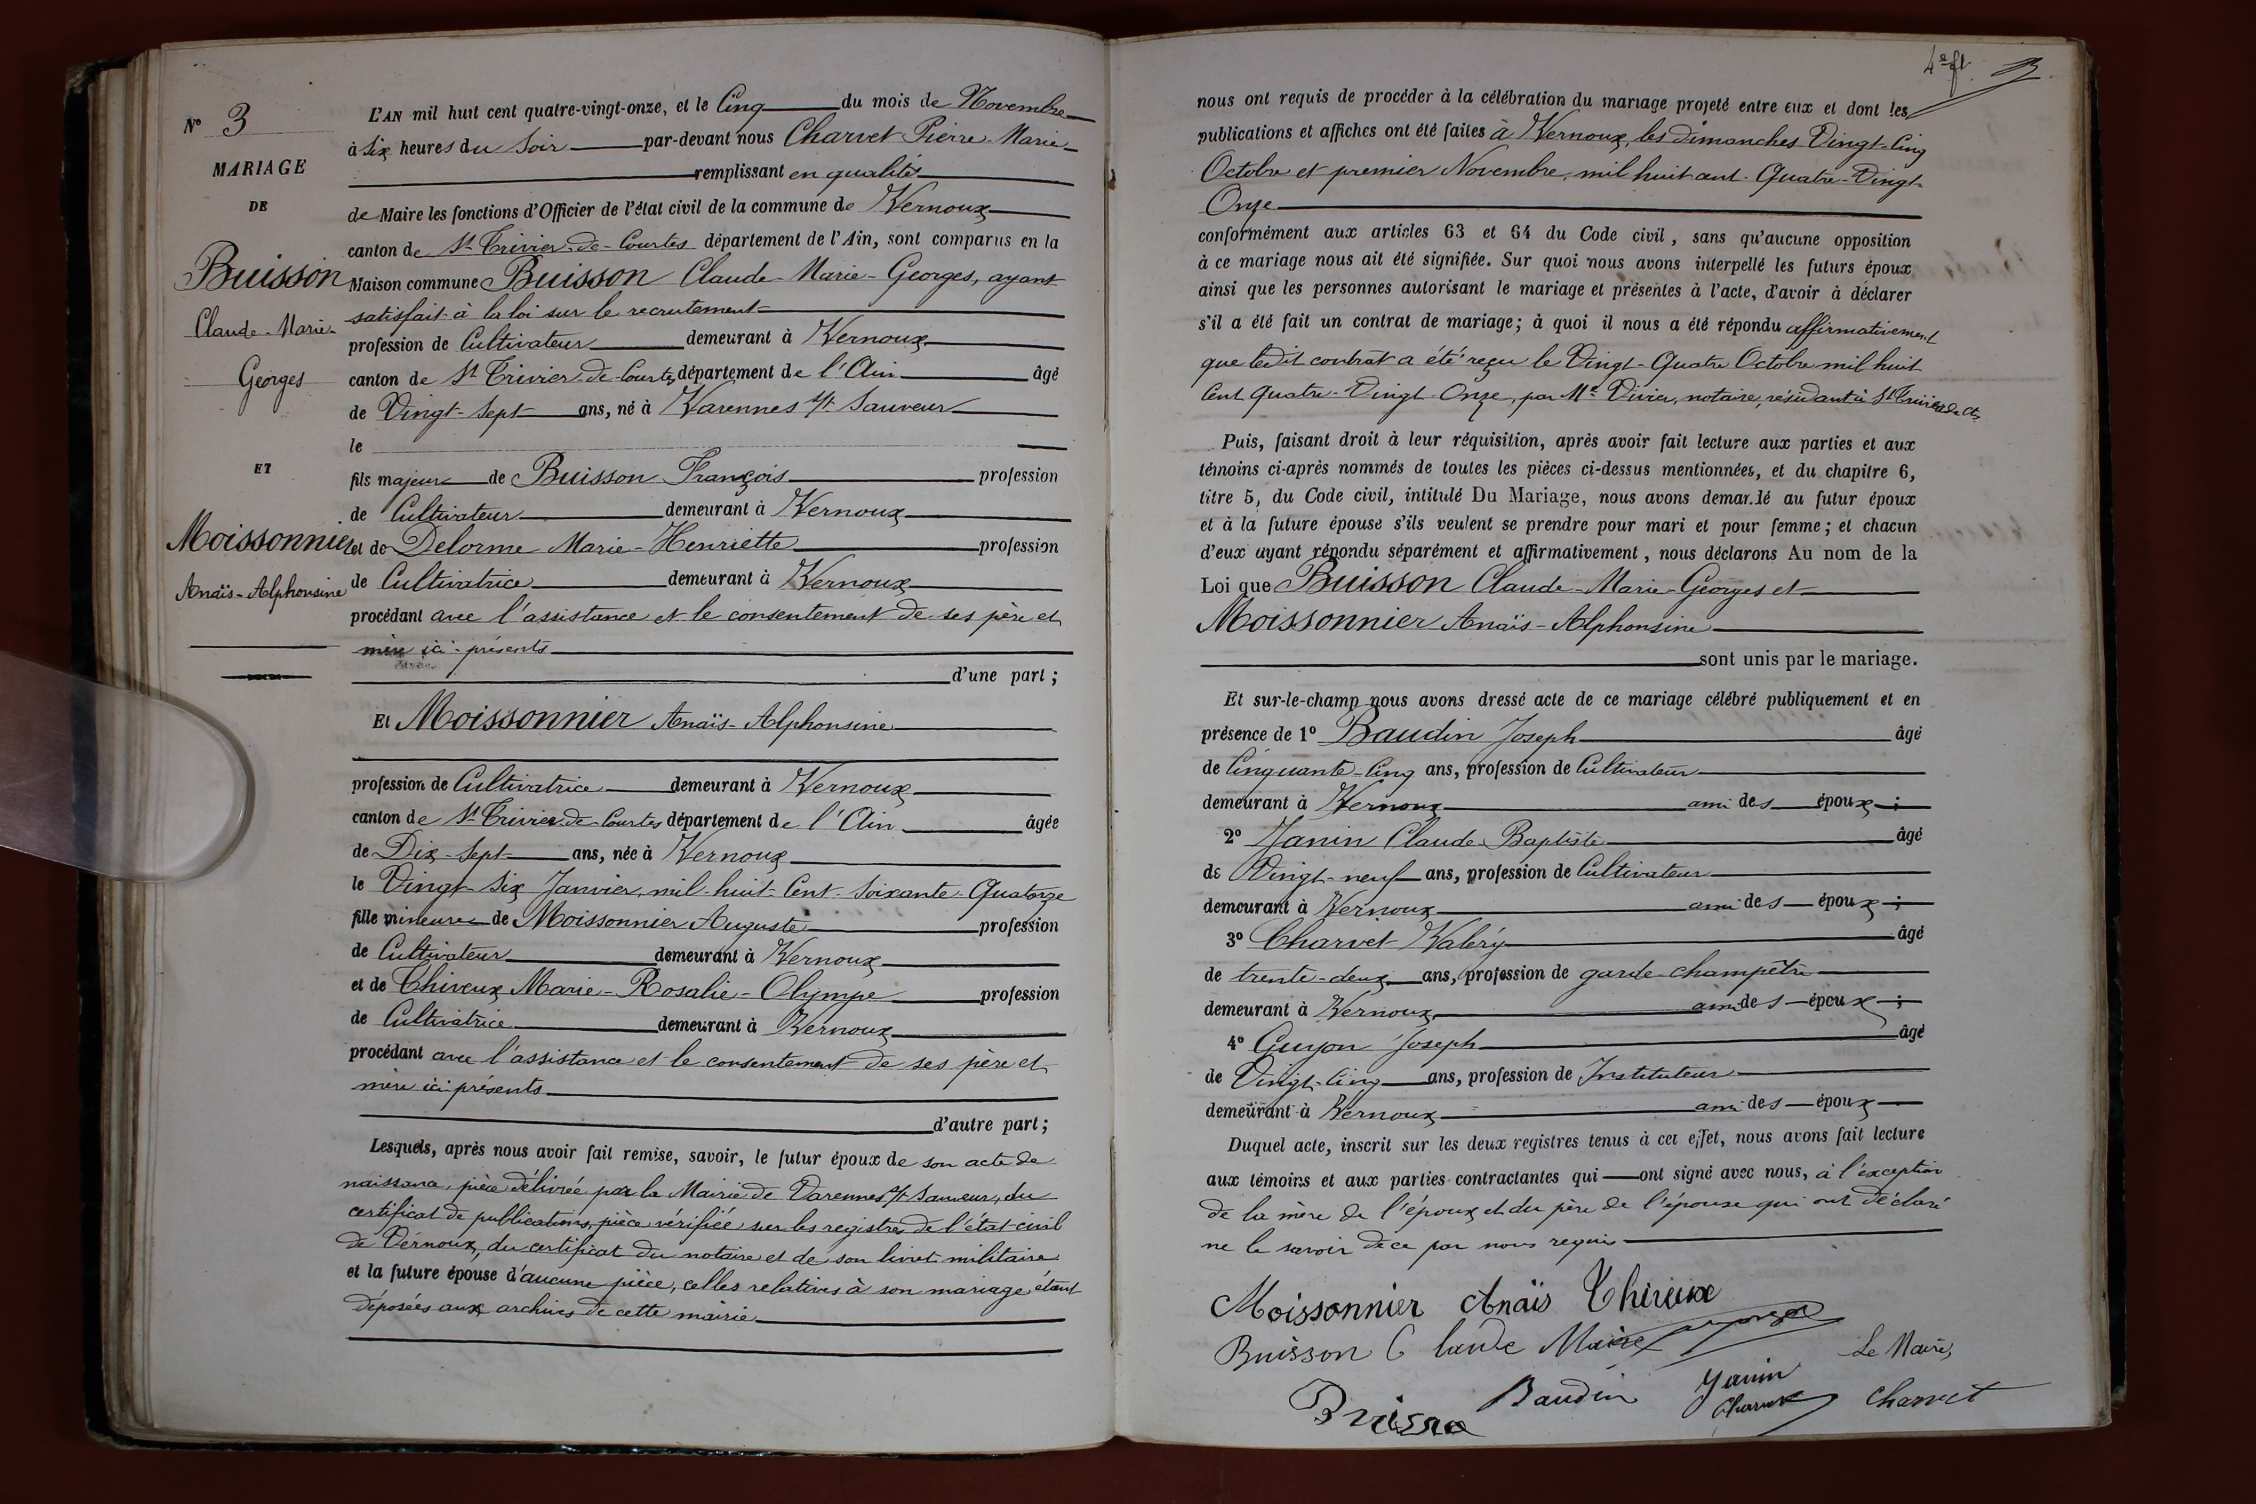 N° 3
MARIAGE
DE
Buisson
Claude-Marie-
Georges
ET
Moissonnier
Anaïs-Alphonsine
L'AN mil huit cent quatre-vingt-onze, et le Cinq du mois de Novembre
à Six heures du Soir par-devant nous Charvet Pierre-Marie
remplissant en qualités
de Maire les fonctions d'Officier de l'état civil de la commune de Vernoux
canton de St Trivier-de-Courtes département de l'Ain, sont comparus en la
Maison commune Buisson Claude-Marie-Georges, ayant
satisfait à la loi sur le recrutement
profession de Cultivateur demeurant à Vernoux
canton de St Trivier-de-Courtes département de l'Ain âgé
de Vingt-Sept ans, né à Varennes St Sauveur
le
fils majeur de Buisson François profession
de Cultivateur demeurant à Vernoux
et de Delorme Marie-Henriette profession
de Cultivatrice demeurant à Vernoux
procédant avec l'assistance et le consentement de ses père et
mère ici-présents
d'une part;
Et Moissonnier Anaïs-Alphonsine
profession de Cultivatrice demeurant à Vernoux
canton de St Trivier-de-Courtes département de l'Ain âgée
de Dix-Sept ans, née à Vernoux
le Vingt-Six Janvier mil-huit-Cent-Soixante-Quatorze
fille mineure de Moissonnier Auguste profession
de Cultivateur demeurant à Vernoux
et de Thiveux Marie-Rosalie-Olympe profession
de Cultivatrice demeurant à Vernoux
procédant avec l'assistance et le consentement de ses père et
mère ici-présents
d'autre part;
Lesquels, après nous avoir fait remise, savoir, le futur époux de son acte de
naissance, pièce délivrée par la Mairie de Varennes St Sauveur, du
certificat de publications, pièce vérifiée sur les registres de l'état-civil
de Vernoux, du certificat du notaire et de son livret militaire
et la future épouse d'aucune pièce, celles relatives à son mariage étant
déposées aux archives de cette mairie
4e ft.
nous ont requis de procéder à la célébration du mariage projeté entre eux et dont les
publications et affiches ont été faites à Vernoux, les dimanches Vingt-Cinq
Octobre et premier Novembre, mil huit cent-Quatre-Vingt-
Onze
conformément aux articles 63 et 64 du Code civil, sans qu'aucune opposition
à ce mariage nous ait été signifiée. Sur quoi nous avons interpellé les futurs époux
ainsi que les personnes autorisant le mariage et présentes à l'acte, d'avoir à déclarer
s'il a été fait un contrat de mariage; à quoi il nous a été répondu affirmativement
que ledit contrat a été reçu le Vingt-Quatre Octobre mil huit
Cent Quatre-Vingt-Onze, par Me Vivier, notaire, résidant à St Trivier de Ctes
Puis, faisant droit à leur réquisition, après avoir fait lecture aux parties et aux
témoins ci-après nommés de toutes les pièces ci-dessus mentionnées, et du chapitre 6,
titre 5, du Code civil, intitulé Du Mariage, nous avons demandé au futur époux
et à la future épouse s'ils veulent se prendre pour mari et pour femme; et chacun
d'eux ayant répondu séparément et affirmativement, nous déclarons Au nom de la
Loi que Buisson Claude-Marie-Georges et
Moissonnier Anaïs-Alphonsine
sont unis par le mariage.
Et sur-le-champ nous avons dressé acte de ce mariage célébré publiquement et en
présence de 1° Baudin Joseph âgé
de Cinquante-Cinq ans, profession de Cultivateur
demeurant à Vernoux ami des époux;
2° Janin Claude-Baptiste âgé
de Vingt-neuf ans, profession de Cultivateur
demeurant à Vernoux ami des époux;
3° Charvet Valéry âgé
de trente-deux ans, profession de garde-champêtre
demeurant à Vernoux ami des époux;
4° Guyon Joseph âgé
de Vingt-Cinq ans, profession de Instituteur
demeurant à Vernoux ami des époux
Duquel acte, inscrit sur les deux registres tenus à cet effet, nous avons fait lecture
aux témoins et aux parties contractantes qui ont signé avec nous, à l'exception
de la mère de l'époux et du père de l'épouse qui ont déclaré
ne le savoir de ce par nous requis
Moissonnier Anaïs Thiveux
Buisson Claude Marie
Le Maire,
Buisson Baudin Janin
Charvet Charvet